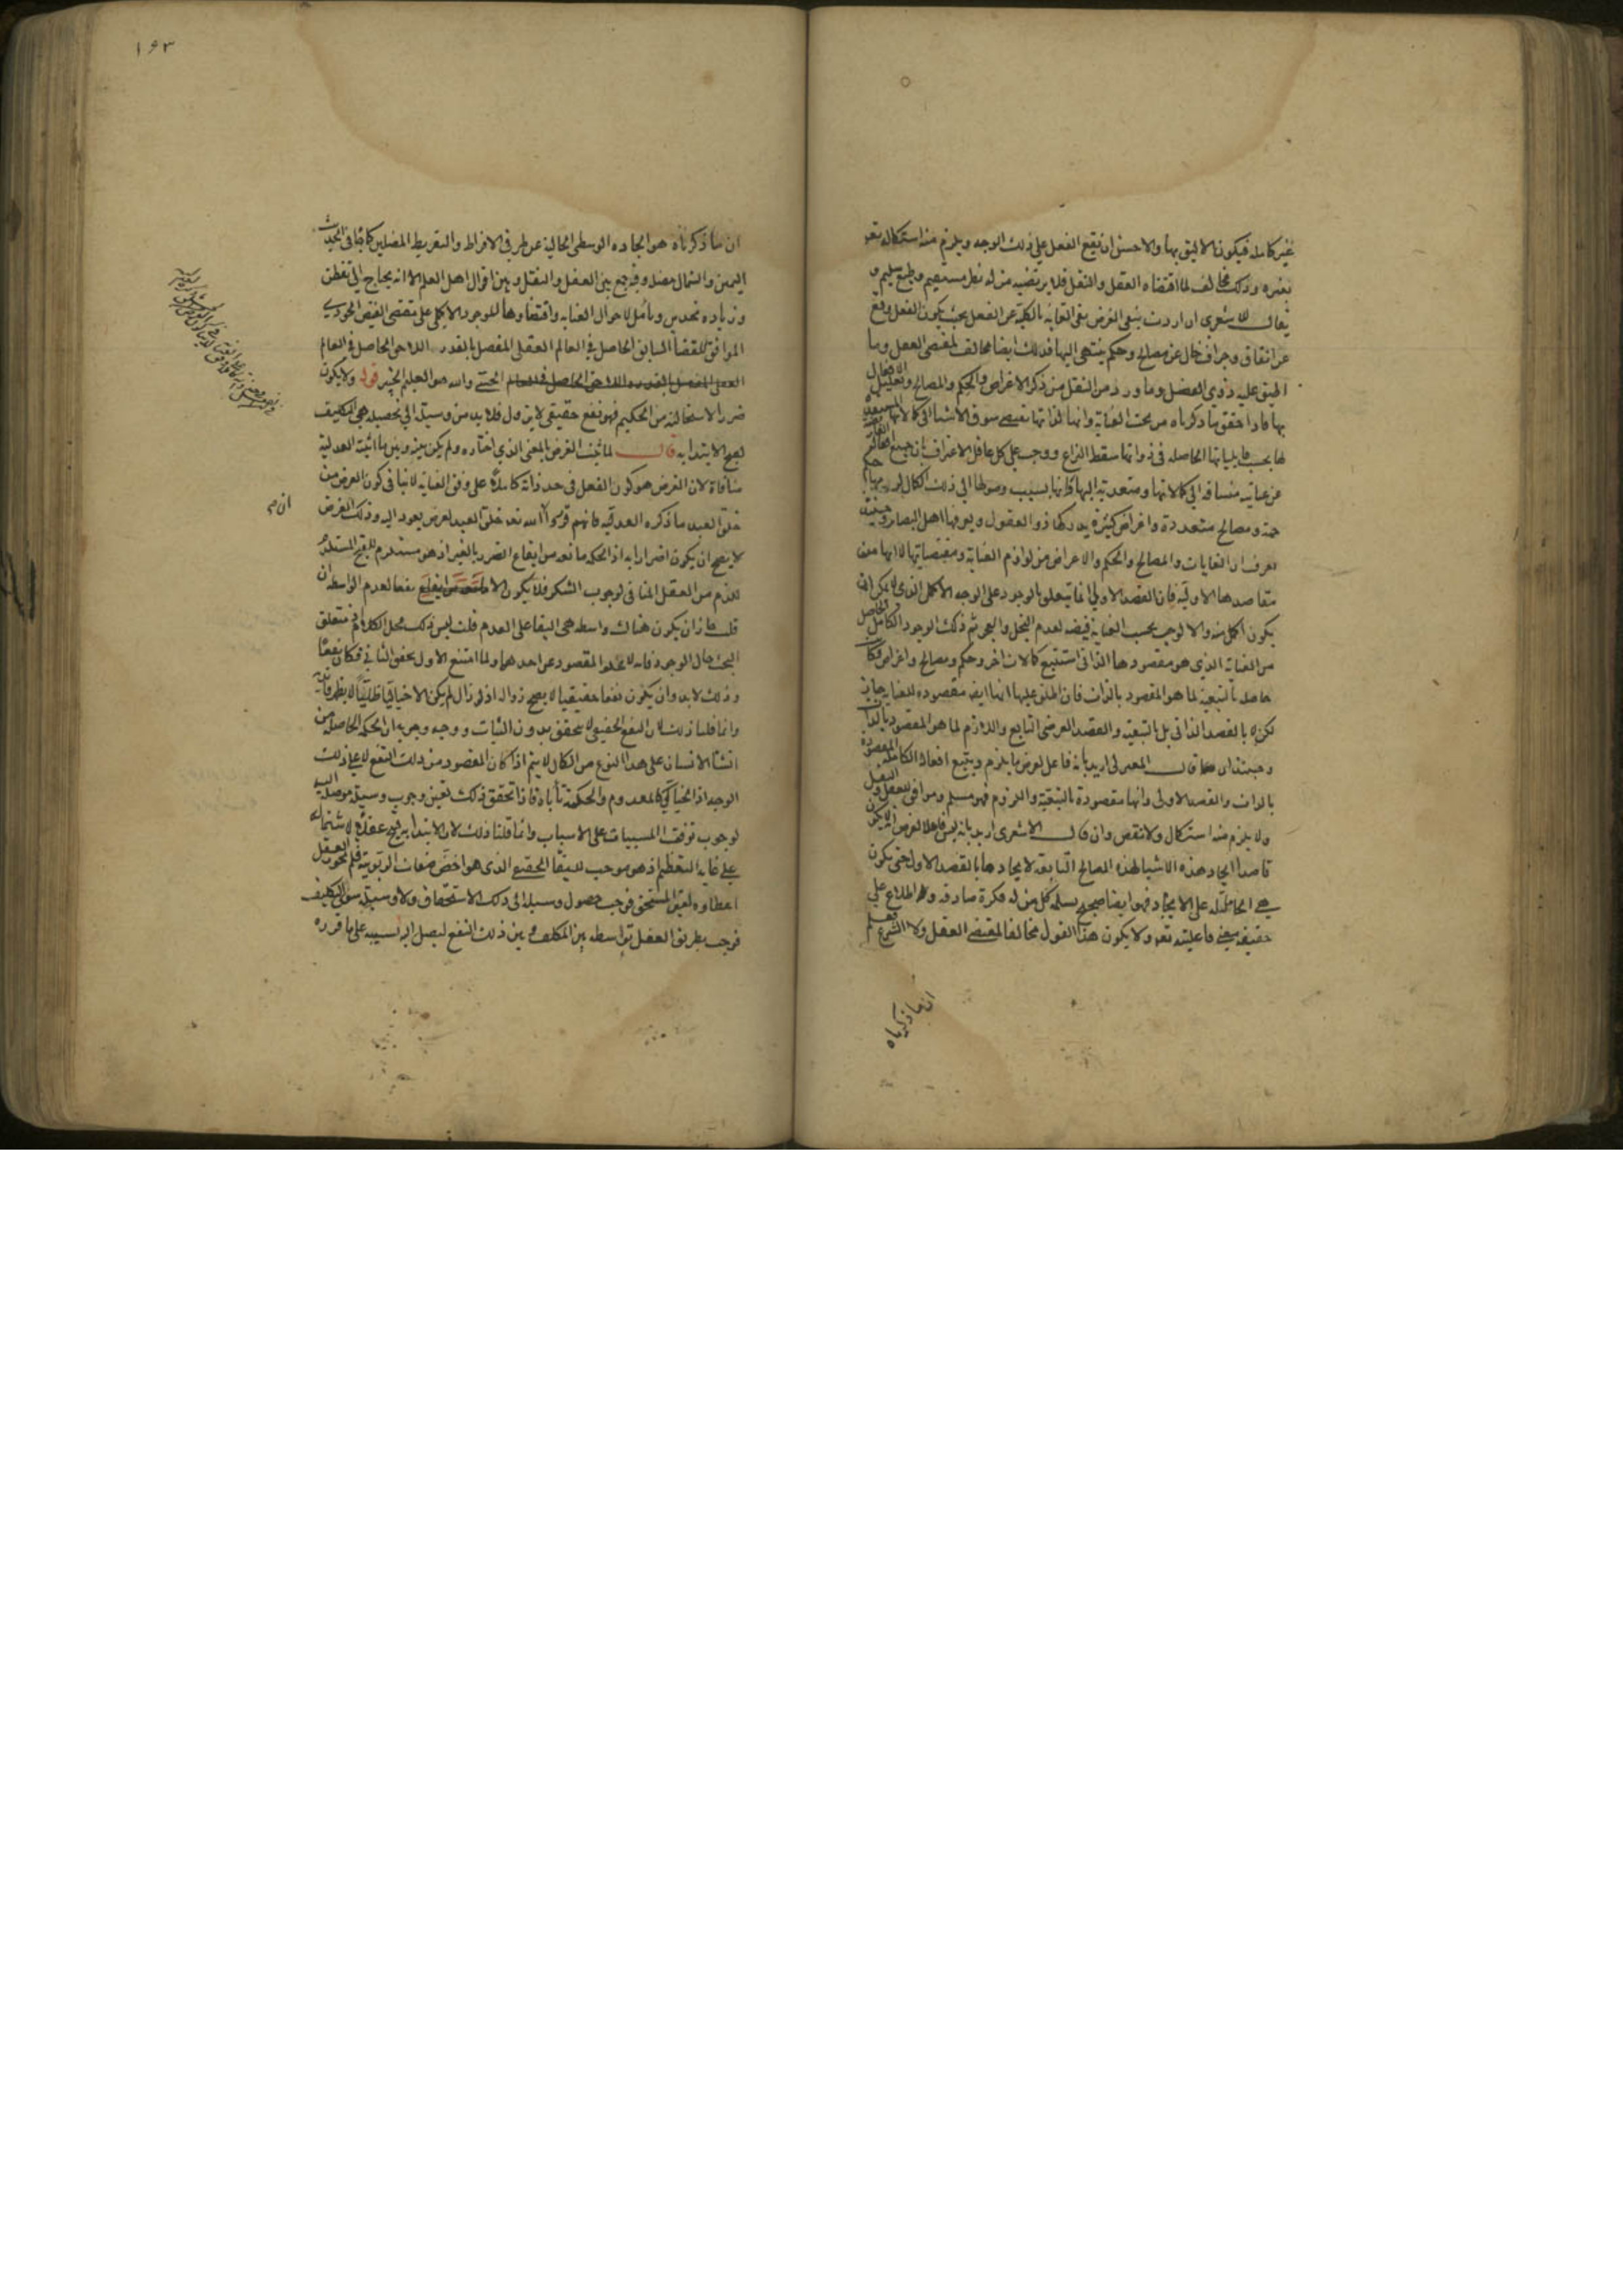 غير كامله فيكون الاليق بها والاحسن ان يقع الفعل على ذلك الوجه ويلزم منه استكماله تعه
بغيره وذلك مخالف لما اقتضاه العقل والنقل فلا يرتضيه من له نظر مستقيم وطبع سليم و
يقال للاشعرى ان اردت بنفى الغرض نفى الغايه بالكلية عن الفعل بحيث يكون الفعل وقع
عن اتفاق وجزاف خال عن مصالح وحكم ينتهى اليها فذلك ايضا مخالف لمقتضى العقل وما
اطبق عليه ذوى الفضل وما ورد من النقل من ذكر الاغراض والحكم والمصالح وتعليل الافعال
بها فاذا حقق ما ذكرناه من بحث العناية وانها لذاتها تقتضى سوق الاشيا الى كمالاتها
لها بحسب قابلياتها الحاصله فى ذواتها سقط النزاع ووجب على كل عاقل الاعتراف بان جميع
عن عنايته منساقه الى كمالاتها ومتعديه اليها وانها بسبب وصولها الى ذلك الكمال
جمة ومصالح متعددة واغراض كثيرة يدركها ذو العقول ويعرفها اهل البصاير وحينئذ
تعرف ان الغايات والمصالح والحكم والاغراض من لوازم العناية ومقتضياتها لا انها من
مقاصدها الاوليه فان القصد الاولى انما يتعلق بالوجود على الوجه الاكمل الذى لا يمكن ان
يكون اكمل منه والا لوجب بحسب العناية فيضه لعدم البخل والعجز ثم ذلك الوجود الكامل الخاص
من العناية الذي هو مقصودها الذاتى استتبع كمالات اخر وحكم ومصالح واغراض فكانت
حاصله بالتبعية لما هو المقصود بالذات فان اطلق عليها انها ايضا مقصوده للعناية جاز
لكن لا بالقصد الذاتى بل بالتبعية والقصد العرضى التابع واللازم لما هو المقصود بالذات
وحينئذ ان قال المعتزلى اريد بانه فاعل لغرض ما يلزم ويتبع افعاله الكامله المقصوده
بالذات والقصد الاولى وانها مقصودة بالتبعية واللزوم فهو مسلم وموافق للعقل والنقل
ولا يلزم منه استكمال ولا نقص وان قال الاشعرى اريد بانه ليس فاعلا لغرض انه لا يكون
قاصدا ايجاد هذه الاشيا لهذه المصالح التابعة لايجادها بالقصد الاول حتى يكون
هى الحاملة له على الايجاد فهو ايضا صحيح يسلمه كل من له فكرة صادقه وله اطلاع على
حقيقه معنى فاعليته تعه ولا يكون هذا القول مخالفا لمقتضى العقل ولا الشرع فعلم
ان ما ذكرناه
١٦٣
ان ما ذكرناه هو الجاده الوسطى الخالية عن طرفى الافراط والتفريط المضلين كما جا فى الحديث
اليمين والشمال مضله وفيه جمع بين العقل والنقل وبين اقوال اهل العلم الا انه يحتاج الى تفطن
وزياده تحدس وتامل لاحوال العنايه واقتضاوها للوجود الاكملى على مقتضى الفيض الجودى
الموافق للقضا السابق الحاصل فى العالم العقلى المفصل بالقدر اللاحق الحاصل فى العالم
العقلى المفصل بالقدر اللاحق الحاصل فى العالم الحسى والله هو العليم الخبير قوله ولا يكون
ضررا لاستحالته من الحكيم فهو نفع حقيقى لا يزول فلا بد من وسيلة الى تحصيله هى التكليف
لقبح الابتدا به قال لما ثبت الغرض بالمعنى الذي اختاره ولم يكن بينه وبين ما اثبته العدلية
منافاة لان الغرض هو كون الفعل فى حد ذاته كاملا على وفق العناية لا ينافى كون الغرض من
خلق العبد ما ذكره العدليه فانهم قرروا ان الله تعه خلق العبد لغرض يعود اليه وذلك الغرض
ان صح
لا يصح ان يكون اضرارا به اذ الحكمه مانعه من ايقاع الضرر بالغير اذ هو مستلزم للقبح المستلزم
للذم من العقل المنافى لوجوب الشكر فلا يكون الا نفعا لعدم الواسطه ان
قلت جاز ان يكون هناك واسطه هى البقا على العدم قلت ليس ذلك محل الكلام اذ متعلق
البحث حال الوجود فانه لا يخلوا المقصود عن احدهما ولما امتنع الاول تحقق الثانى فكان نفعا
وذلك لا بد وان يكون نفعا حقيقيا لا يصح زواله اذ لو زال لم يكن الا خياليا ظليا لا يظهر فايدته
وانما قلنا ذلك لان النفع الحقيقى لا يتحقق بدون الثبات ووجه وجوبه ان الحكمه الحاصله من
انشا الانسان على هذا النوع من الكمال لا يتم اذا كان المقصود من ذلك النفع لا على ذلك
الوجه اذ الخيالى كالمعدوم والحكمة تأباه فاذا تحقق ذلك تعين وجوب وسيلة موصله اليه
لوجوب توقف المسببات على الاسباب وانما قلنا ذلك لان الابتدا به قبيح عقلا لاشتماله
على غاية التعظيم اذ هو موجب للبقا الحقيقى الذى هو اخص صفات الربوبية فلم يجوز العقل
اعطاوه لغير المستحق فوجب حصول وسيله الى ذلك الاستحقاق ولا وسيلة سوى التكليف
فوجب بطريق العقل توسطه بين المكلف وبين ذلك النفع ليصل اليه بسببه على ما قرره